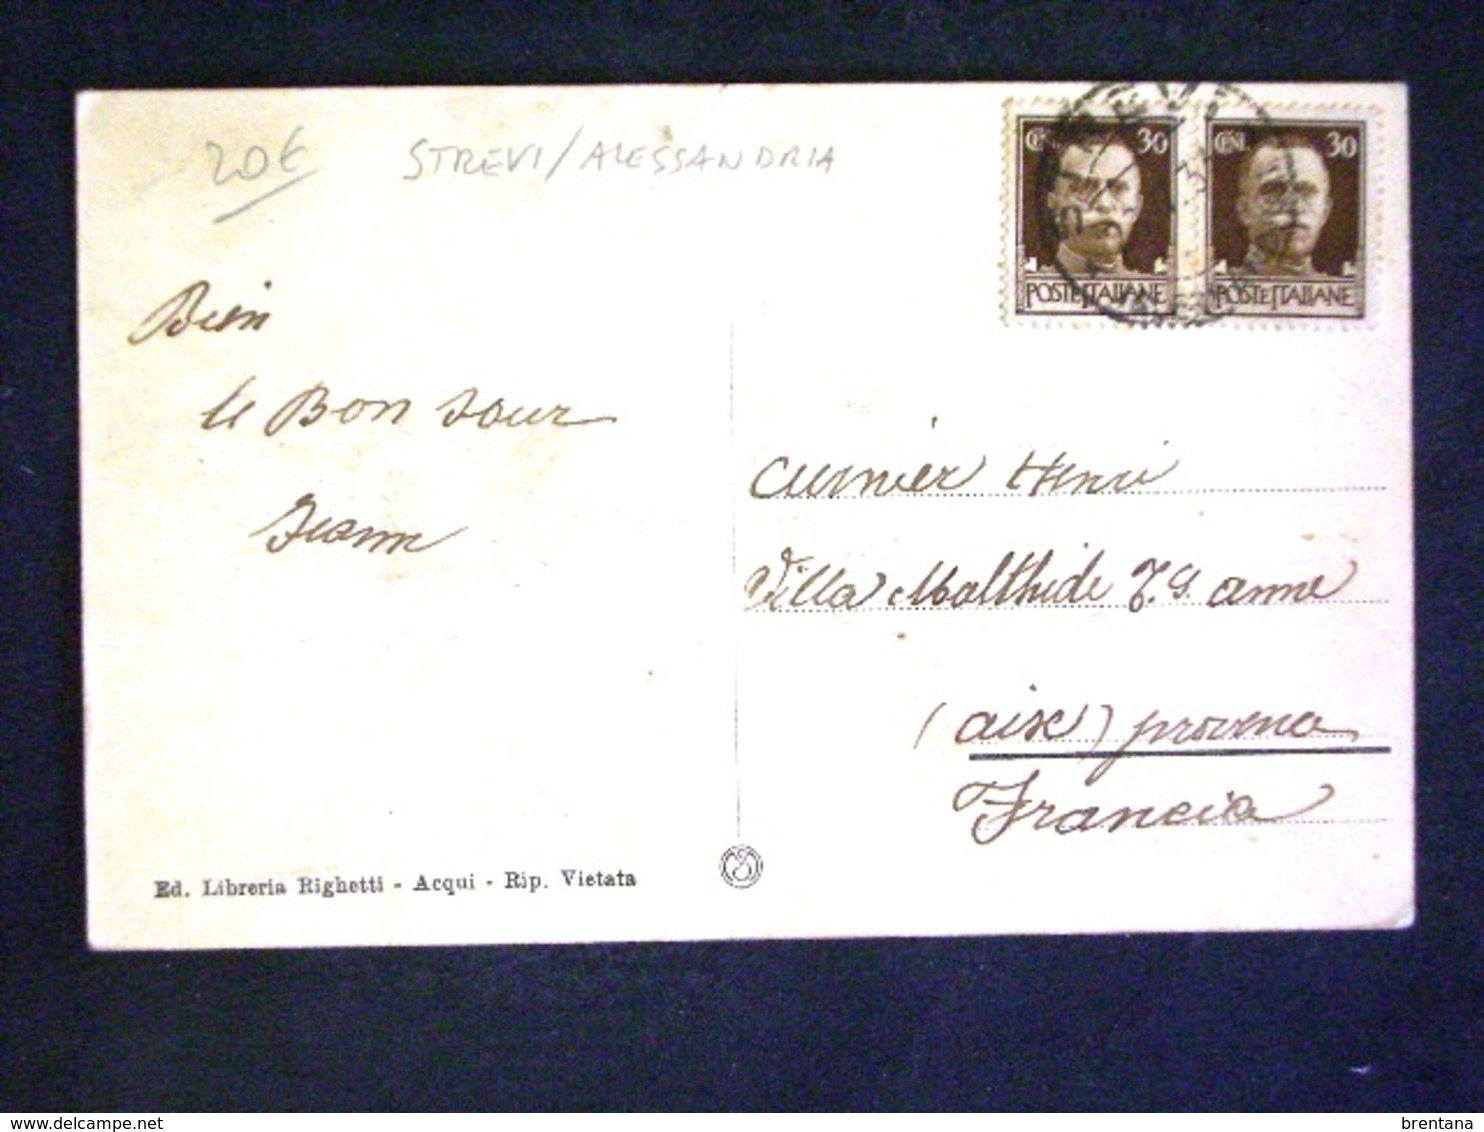 20€ STREVI/ALESSANDRIA
CENT. 30
CENT. 30
POSTE ITALIANE
POSTE ITALIANE
Bien
le Bon Jour
Jeann
Curnier Henri
Villa Malthide T. S. anne
(aix) provena
Francia
Ed. Libreria Righetti - Acqui - Rip. Vietata
delcampe.net
brentana